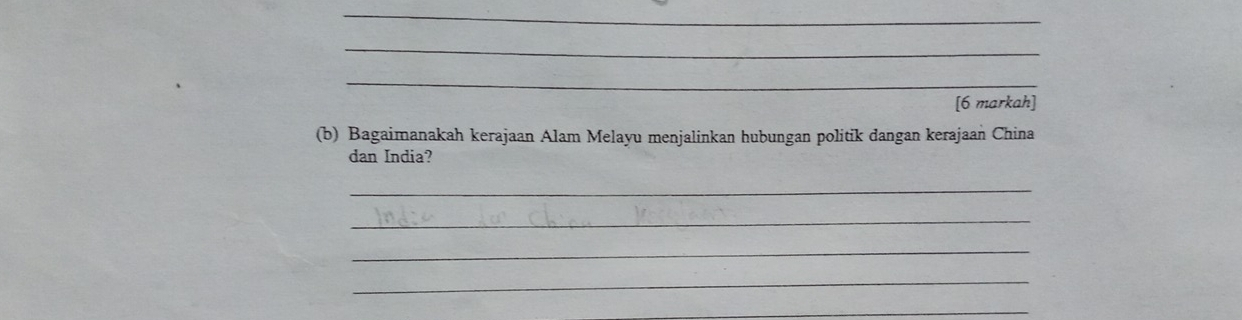 [6 markah]
(b) Bagaimanakah kerajaan Alam Melayu menjalinkan hubungan politik dangan kerajaan China
dan India?
India dan China Kerajaan